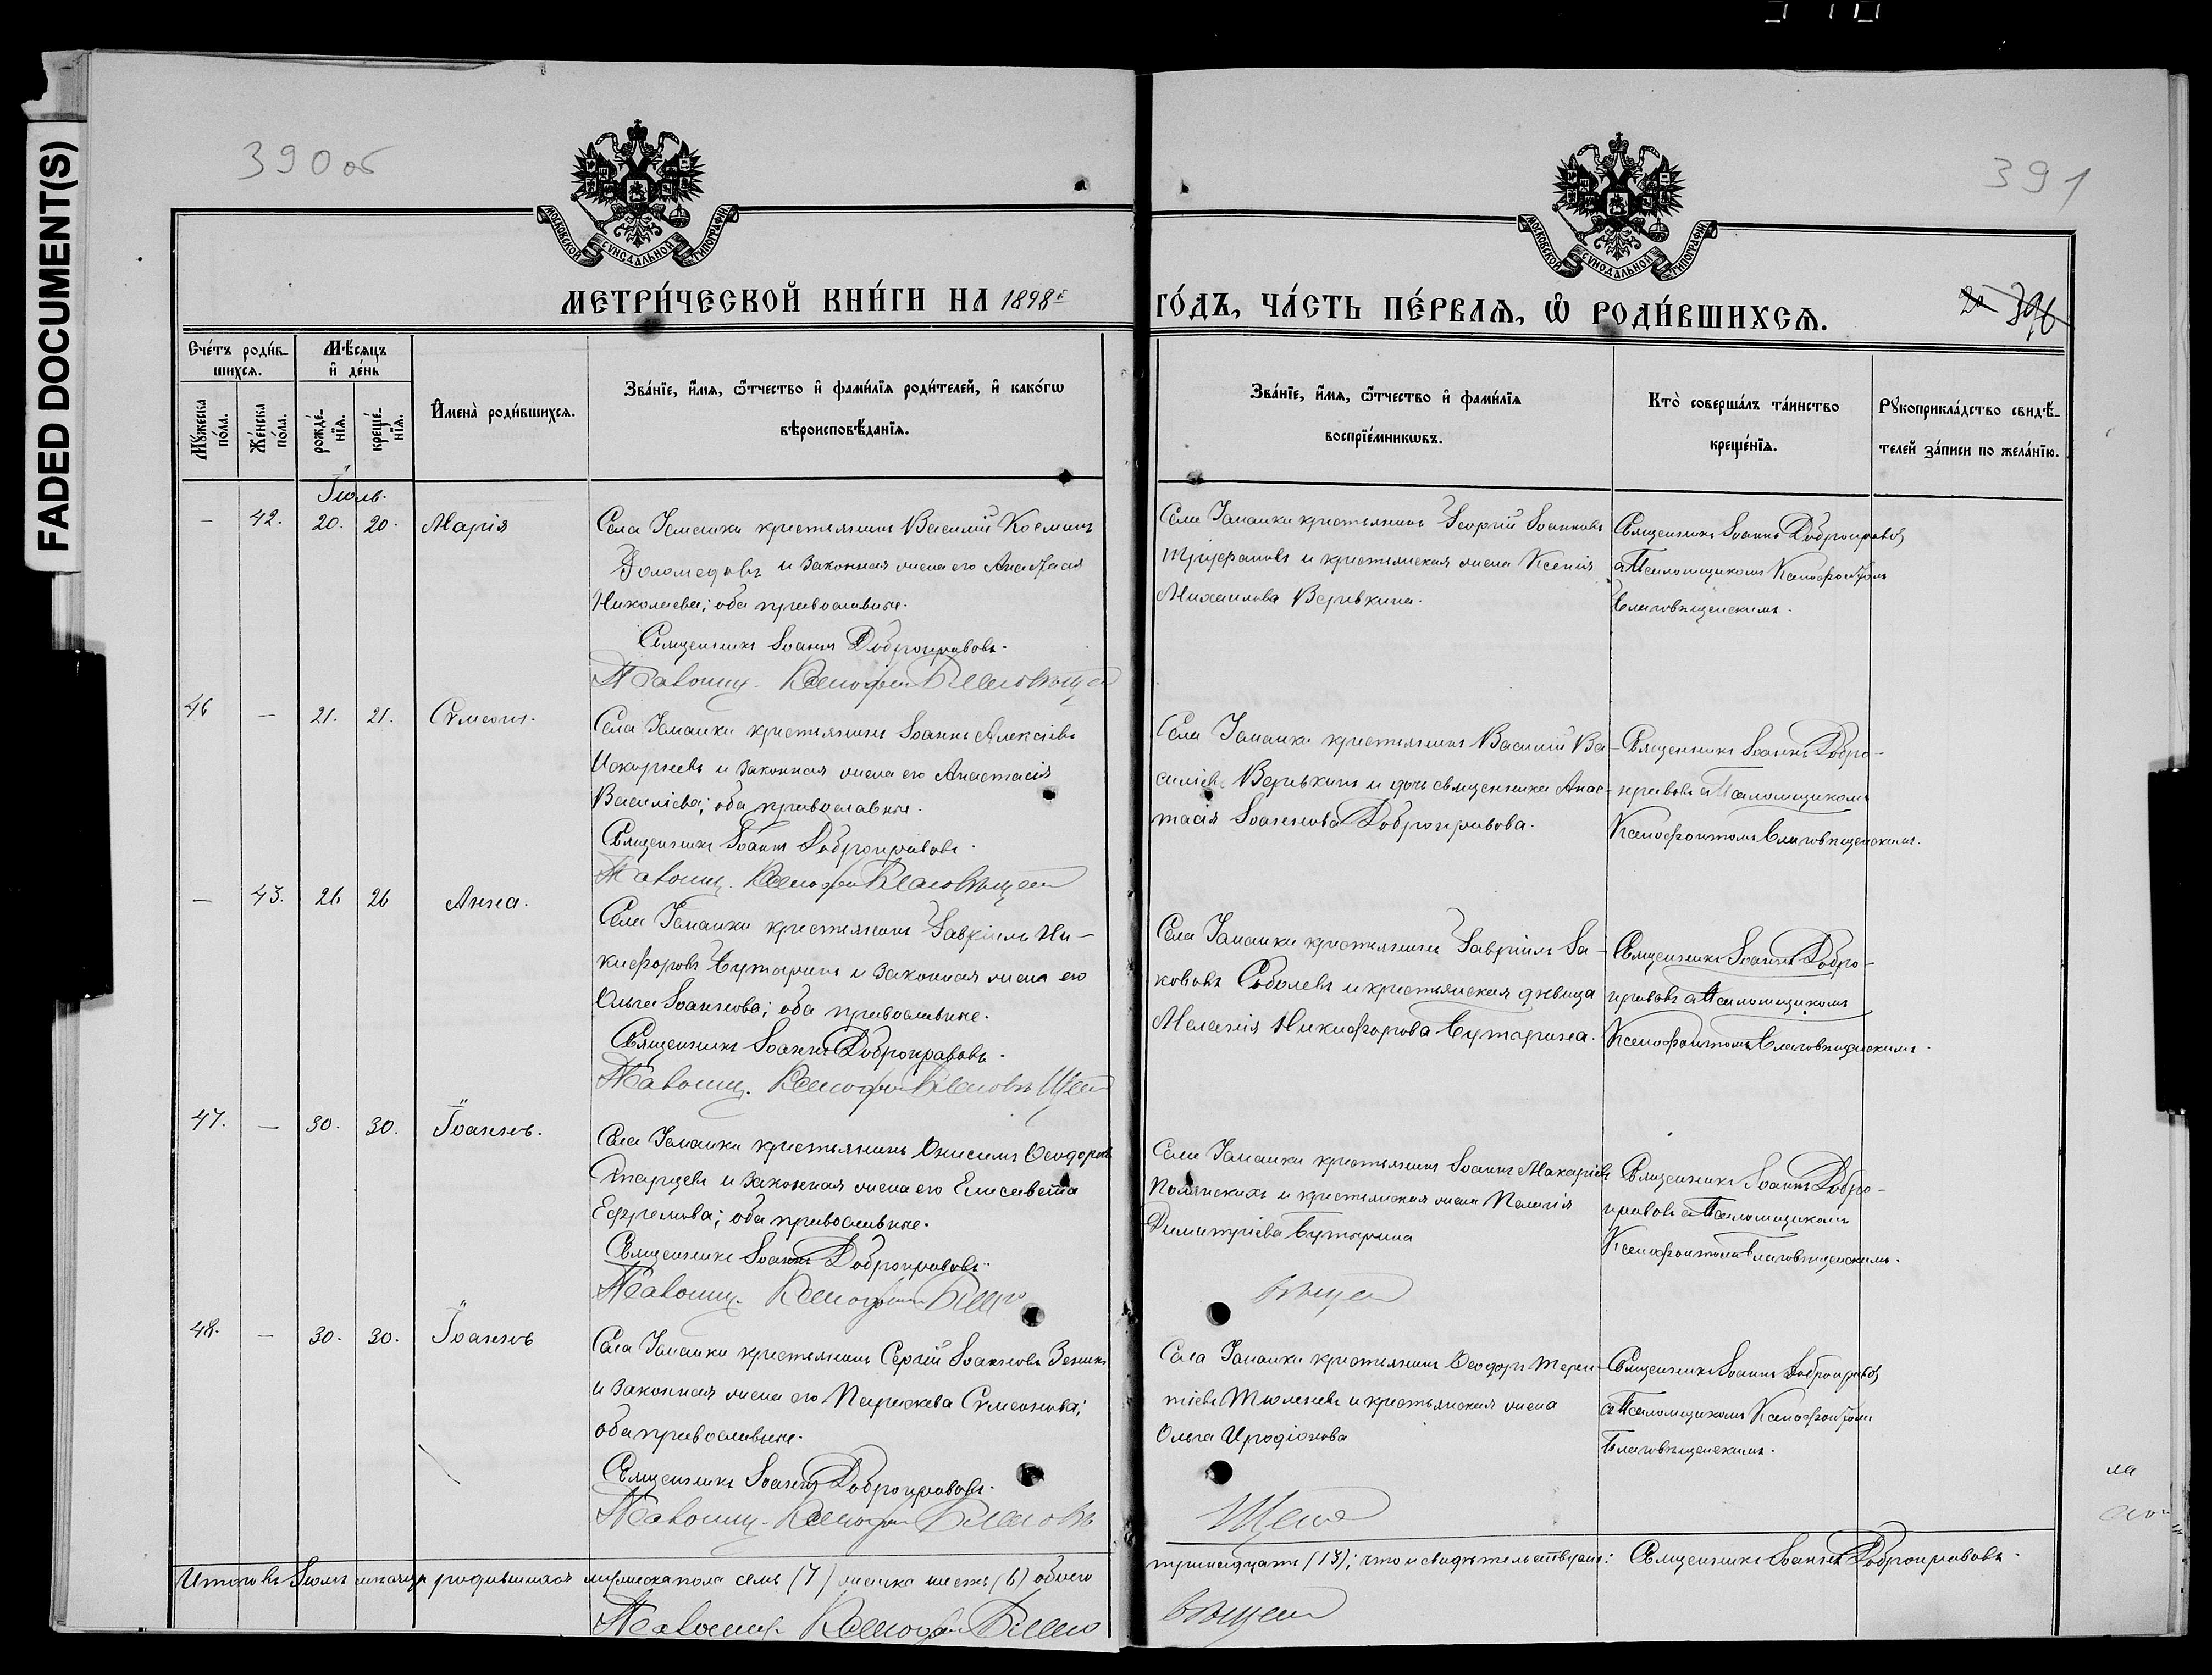 FADED DOCUMENT(S)
390 об
391
МОСКОВСКОЙ СѴНОДАЛЬНОЙ ТИПОГРАФІИ
МОСКОВСКОЙ СѴНОДАЛЬНОЙ ТИПОГРАФІИ
МЕТРИ́ЧЕСКОЙ КНИ́ГИ НА 1898й
ГО́ДЪ, ЧА́СТЬ ПЕ́РВАѦ, Ѽ РОДИ́ВШИХСѦ.
Сче́тъ роди́в-
шихсѧ.
Мꙋ́жеска
по́ла.
Же́нска
по́ла.
Мѣ́сѧцъ
и҆ де́нь
рожде́-
нїѧ.
креще́-
нїѧ.
И҆мена̀ роди́вшихсѧ.
Зва́нїе, и҆́мѧ, ѻ҆́тчество и҆ фами́лїѧ роди́телей, и҆ како́гѡ
вѣроисповѣ́данїѧ.
Зва́нїе, и҆́мѧ, ѻ҆́тчество и҆ фами́лїѧ
воспрїе́мникѡвъ.
Кто̀ соверша́лъ та́инство
креще́нїѧ.
Рꙋкоприкла́дство свидѣ́-
телей за́писи по жела́нїю.
Іюль.
— 42. 20. 20. Марія
Села крестьянинъ Василій Косминъ
и законная жена его
Николаева; оба православные.
Священникъ Іоаннъ Добронравовъ.
Села крестьянинъ Георгій Іоанновъ
Трифановъ и крестьянская жена Ксенія
Михаилова Веривкина.
Священникъ Іоаннъ Добронравовъ
съ Псаломщикомъ Ксенофонтомъ
Благовѣщенскимъ.
46 — 21. 21. Сѵмеонъ.
Села крестьянинъ Іоаннъ Алексіевъ
и законная жена его Анастасія
Василіева; оба православные.
Священникъ Іоаннъ Добронравовъ.
Села крестьянинъ Василій Ва-
силіевъ Веривкинъ и дочь священника Анас-
тасія Іоаннова Добронравова.
Священникъ Іоаннъ Добро-
нравовъ съ Псаломщикомъ
Ксенофонтомъ Благовѣщенскимъ.
— 43. 26 26 Анна.
Села крестьянинъ Гавріилъ Ни-
кифоровъ Бутаринъ и законная жена его
Ольга Іоаннова; оба православные.
Священникъ Іоаннъ Добронравовъ.
Села крестьянинъ Гавріилъ Іа-
кововъ Соболевъ и крестьянская дѣвица
Меланія Никифорова Бутарина.
Священникъ Іоаннъ Добро-
нравовъ съ Псаломщикомъ
Ксенофонтомъ Благовѣщенскимъ.
47. — 30. 30. Іоаннъ.
Села крестьянинъ Онисимъ Ѳеодоровъ
Старцевъ и законная жена его Елисавета
Ефремова; оба православные.
Священникъ Іоаннъ Добронравовъ.
Села крестьянинъ Іоаннъ Макаріевъ
Полянскихъ и крестьянская жена Пелагія
Димитріева Бутарина
Священникъ Іоаннъ Добро-
нравовъ съ Псаломщикомъ
Ксенофонтомъ Благовѣщенскимъ.
48. — 30. 30. Іоаннъ
Села крестьянинъ Сергій Іоанновъ Зенинъ
и законная жена его Параскева Сѵмеонова;
оба православные.
Священникъ Іоаннъ Добронравовъ.
Села крестьянинъ Ѳеодоръ Терен-
тіевъ Тюленевъ и крестьянская жена
Ольга Иродіонова
Священникъ Іоаннъ Добронравовъ
съ Псаломщикомъ Ксенофонтомъ
Благовѣщенскимъ.
Итого въ Іюлѣ мѣсяцѣ родившихся мужеска пола семь (7) женска шесть (6) обоего
тринадцать (13); что и свидѣтельствуемъ: Священникъ Іоаннъ Добронравовъ.